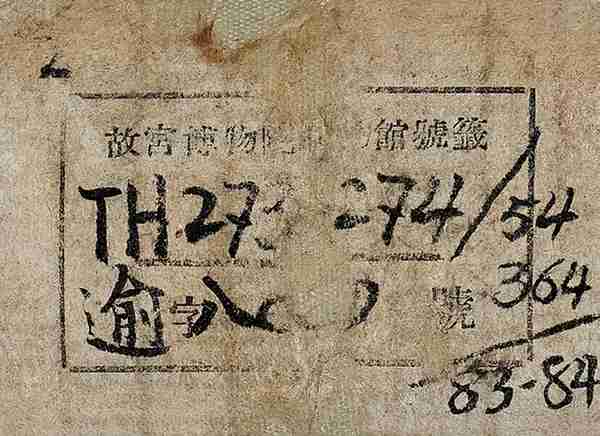 故宮博物院 館號籤
TH 273 274/54
逾字八 號 364
83-84